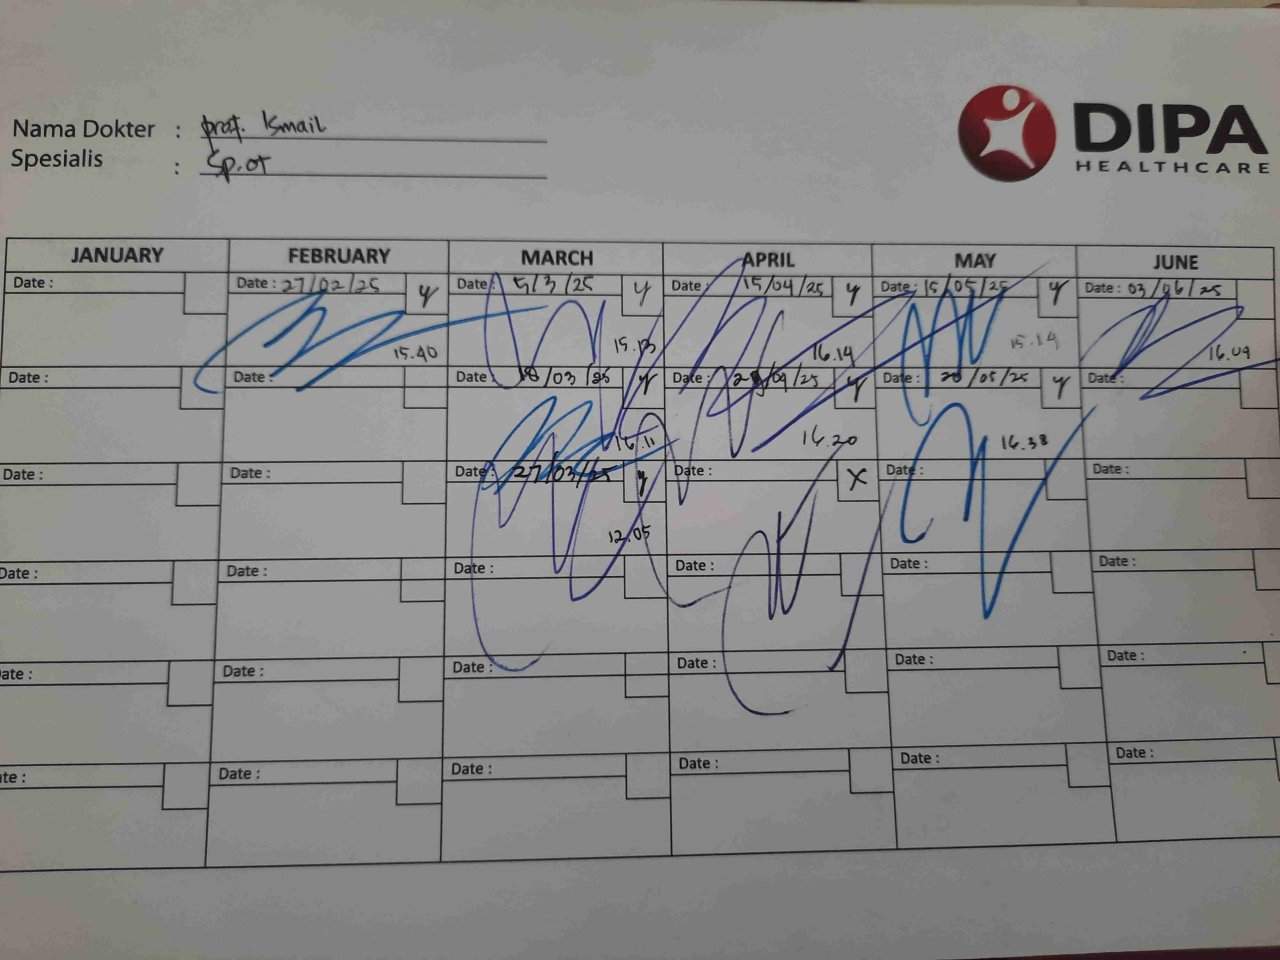 DIPA
HEALTHCARE
Nama Dokter : prof. Ismail
Spesialis : Sp.OT
JANUARY FEBRUARY MARCH APRIL MAY JUNE
Date : Date : 27/02/25 y Date : 5/3/25 y Date : 15/04/25 y Date : 15/05/25 y Date : 03/06/25
15.40 15.13 16.14 15.14 16.09
Date : Date : Date : 18/03/25 y Date : /04/25 y Date : 20/05/25 y Date :
16.11 16.20 16.38
Date : Date : Date : 27/03/25 y Date : X Date : Date :
12.05
Date : Date : Date : Date : Date : Date :
ate : Date : Date : Date : Date : Date :
te : Date : Date : Date : Date : Date :